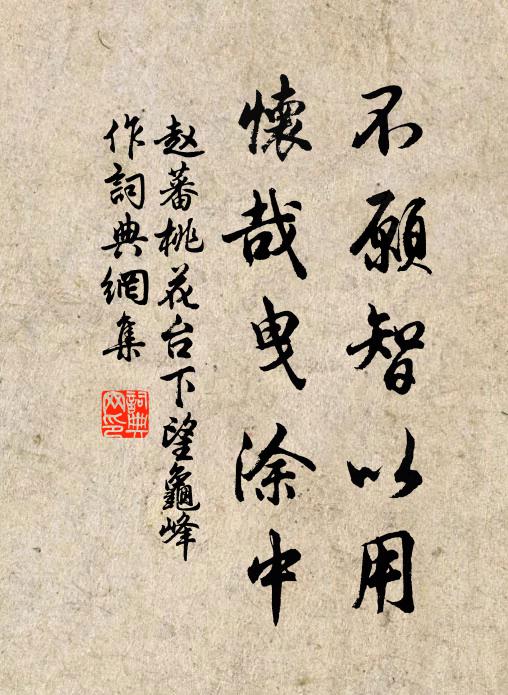 不願智以用
懷哉曳涂中
赵蕃桃花台下望龜峰
作詞典網集
詞典
网印